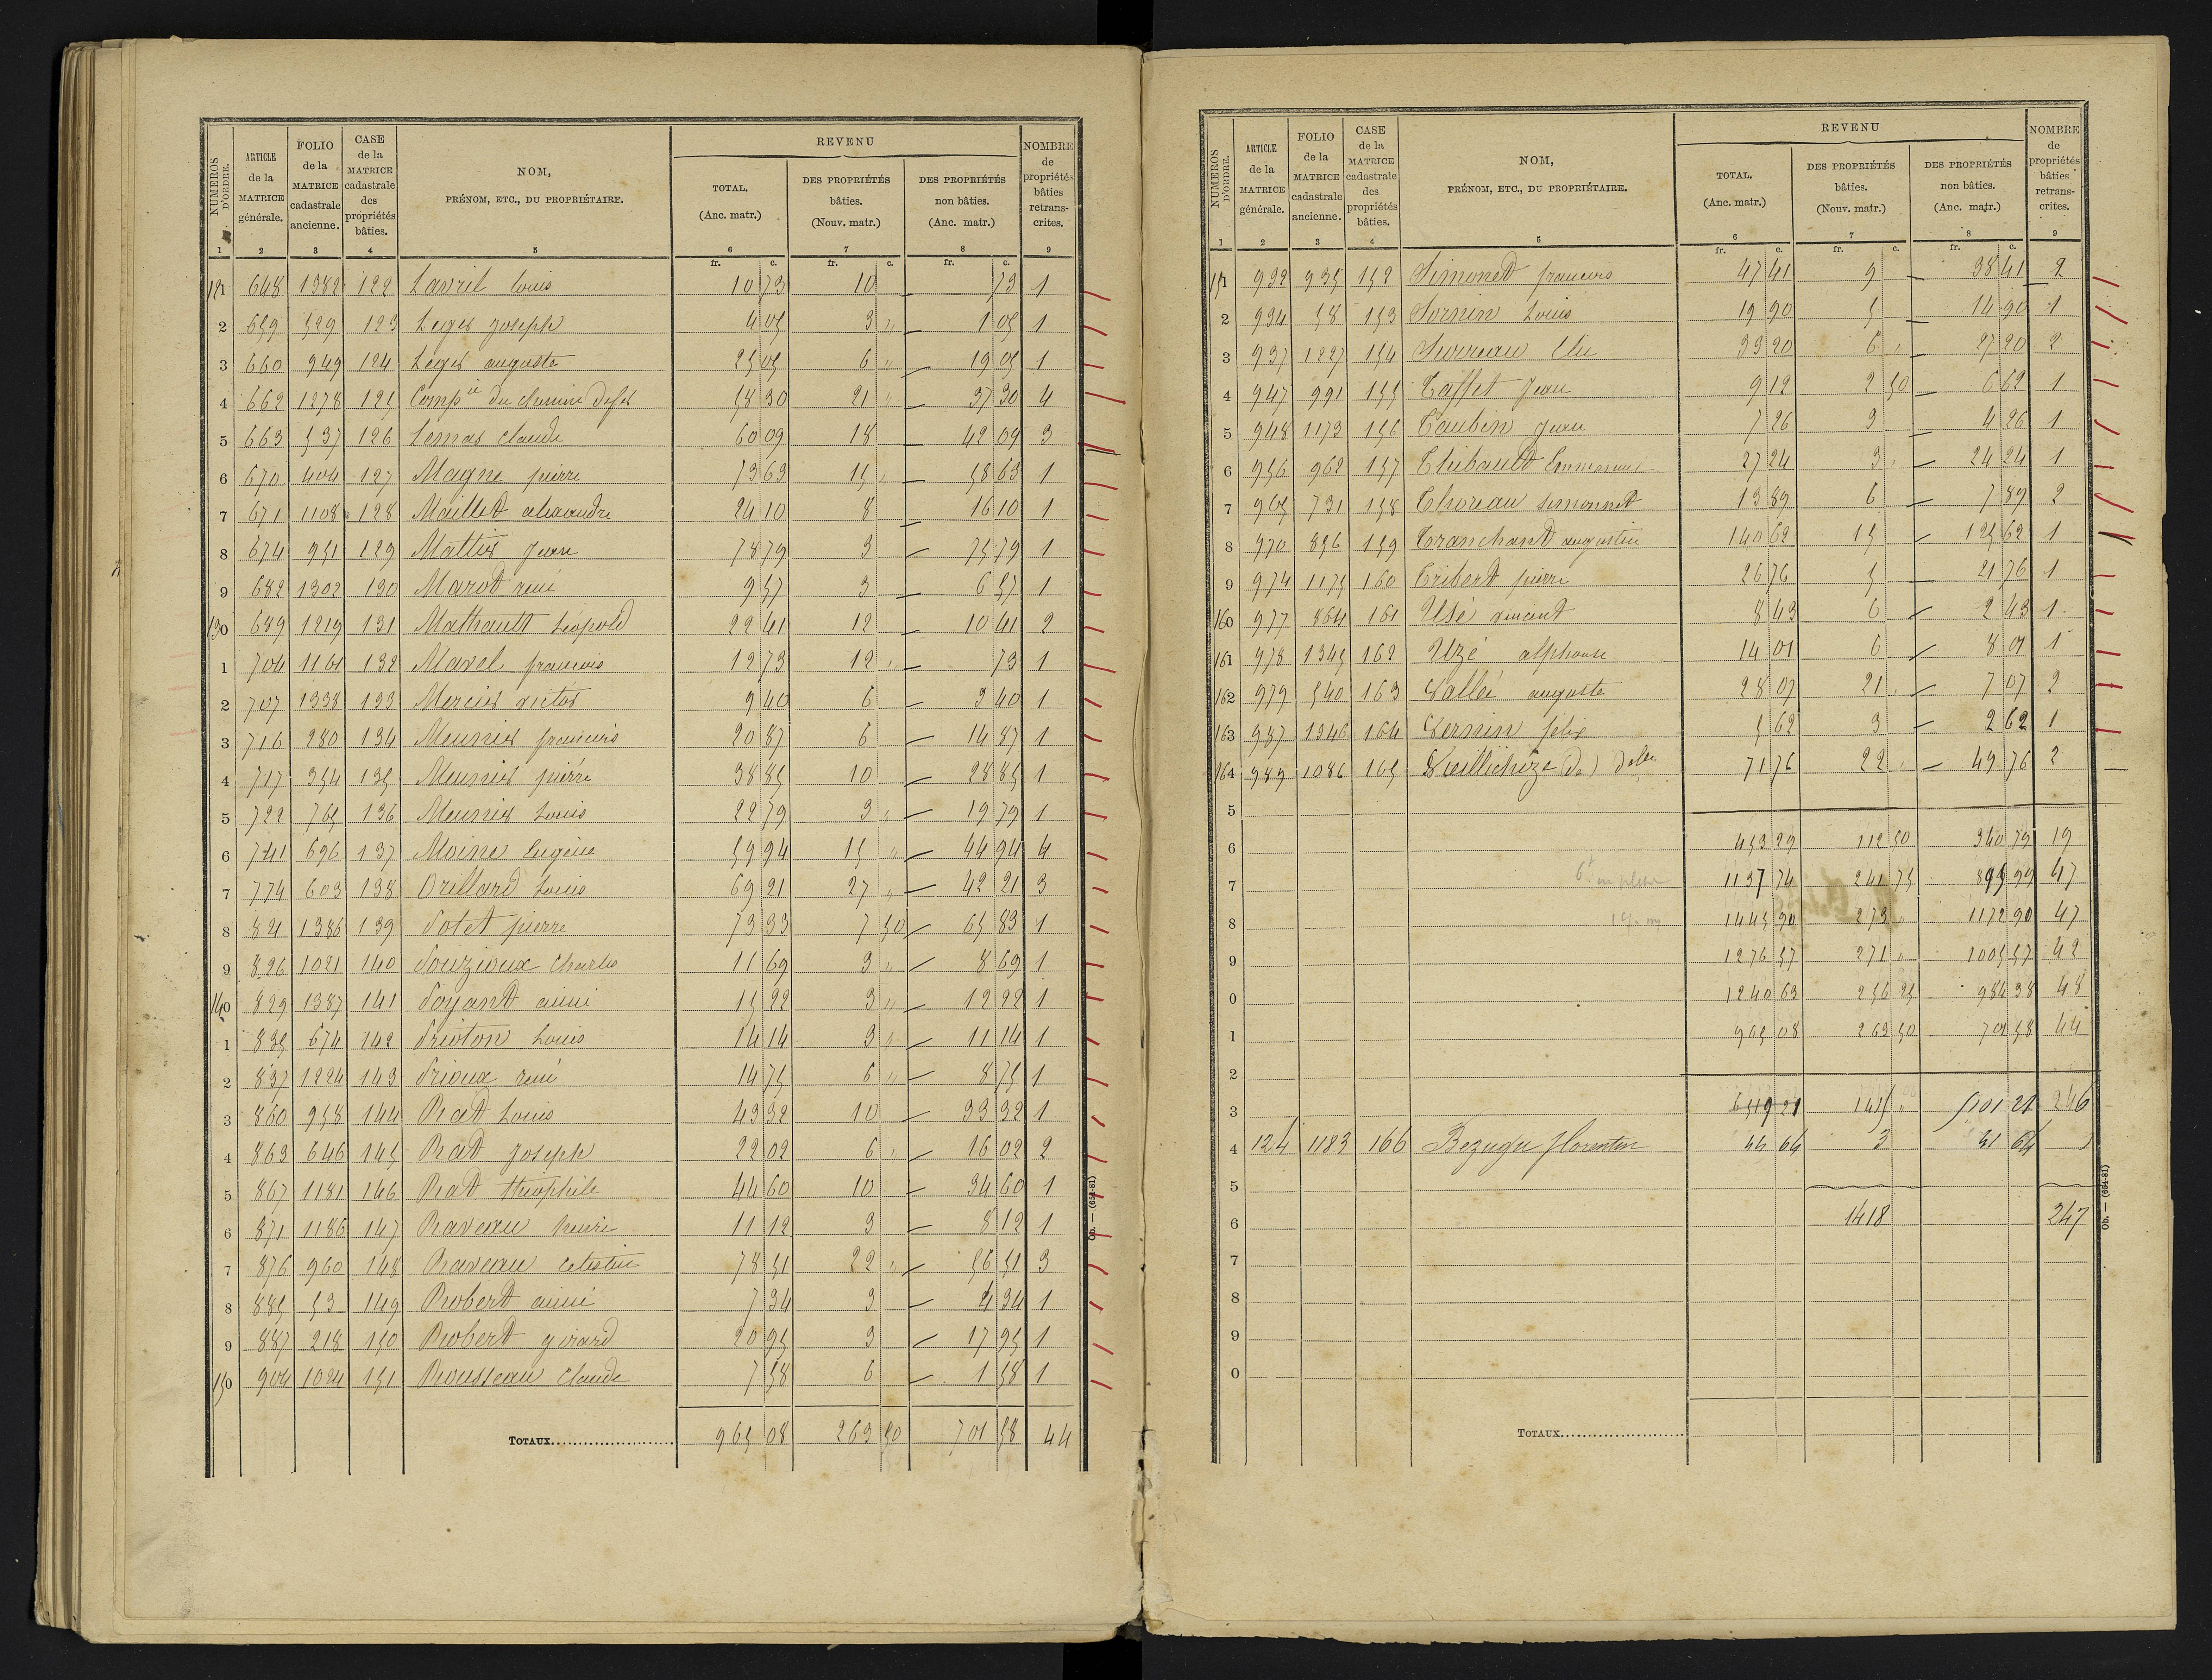 NUMÉROS D'ORDRE. | ARTICLE de la MATRICE générale. | FOLIO de la MATRICE cadastrale ancienne. | CASE de la MATRICE cadastrale des propriétés bâties. | NOM, PRÉNOM, ETC., DU PROPRIÉTAIRE. | REVENU | NOMBRE de propriétés bâties retranscrites.
TOTAL. (Anc. matr.) | DES PROPRIÉTÉS bâties. (Nouv. matr.) | DES PROPRIÉTÉS non bâties. (Anc. matr.)
1 2 3 4 5 6 7 8 9
fr. c. fr. c. fr. c.
121 648 1382 122 Lavril louis 10 73 10 73 1
2 659 529 123 Leger joseph 4 05 3 " 1 05 1
3 660 949 124 Leger auguste 25 05 6 " 19 05 1
4 662 1278 125 Compie du chemin de fer 58 30 21 " 37 30 4
5 663 537 126 Lemas claude 60 09 18 42 09 3
6 670 404 127 Magne pierre 73 63 15 " 58 63 1
7 671 1108 128 Maillet alexandre 24 10 8 16 10 1
8 674 951 129 Mattix Jean 78 79 3 75 79 1
9 682 1302 130 Marot réné 9 57 3 6 57 1
130 689 1219 131 Mathault Léopold 22 41 12 10 41 2
1 704 1161 132 Mavel francois 12 73 12 " 73 1
2 707 1338 133 Mercier victor 9 40 6 3 40 1
3 716 280 134 Meunier francois 20 87 6 14 87 1
4 717 354 135 Meunier pierre 38 85 10 28 85 1
5 722 765 136 Meunier Louis 22 79 3 " 19 79 1
6 741 696 137 Moine Eugène 59 94 15 " 44 94 4
7 774 603 138 Orillard Louis 69 21 27 " 42 21 3
8 821 1386 139 Potet pierre 73 33 7 50 65 83 1
9 826 1021 140 Pouzioux Charles 11 69 3 " 8 69 1
140 829 1387 141 Poyant aimé 15 22 3 " 12 22 1
1 835 674 142 Prioton Louis 14 14 3 " 11 14 1
2 837 1224 143 Prioux réné 14 75 6 " 8 75 1
3 860 958 144 Rat Louis 43 32 10 33 32 1
4 863 646 145 Rat Joseph 22 02 6 " 16 02 2
5 867 1181 146 Rat théophile 44 60 10 34 60 1
6 871 1186 147 Raveau henri 11 12 3 8 12 1
7 876 960 148 Raveau célestin 78 51 22 " 56 51 3
8 885 53 149 Robert aimé 7 34 3 4 34 1
9 887 218 150 Robert girard 20 95 3 17 95 1
150 904 1024 151 Rousseau Claude 7 58 6 1 58 1
TOTAUX 965 08 263 50 701 58 44
Ob. — (654-81)
NUMÉROS D'ORDRE. | ARTICLE de la MATRICE générale. | FOLIO de la MATRICE cadastrale ancienne. | CASE de la MATRICE cadastrale des propriétés bâties. | NOM, PRÉNOM, ETC., DU PROPRIÉTAIRE. | REVENU | NOMBRE de propriétés bâties retranscrites.
TOTAL. (Anc. matr.) | DES PROPRIÉTÉS bâties. (Nouv. matr.) | DES PROPRIÉTÉS non bâties. (Anc. matr.)
1 2 3 4 5 6 7 8 9
fr. c. fr. c. fr. c.
151 932 935 152 Simonet francois 47 41 9 38 41 2
2 934 58 153 Sornin Louis 19 90 5 14 90 1
3 937 1227 154 Surreau Elie 33 20 6 " 27 20 2
4 947 991 155 Taffet Jean 9 12 2 50 6 62 1
5 948 1173 156 Taubin Jean 7 26 3 4 26 1
6 956 962 157 Thibault 27 24 3 " 24 24 1
7 965 731 158 Thoreau simonnet 13 89 6 7 89 2
8 970 856 159 Tranchant augustin 140 62 15 125 62 1
9 974 1175 160 Tribert pierre 26 76 5 21 76 1
160 977 864 161 Usé vincent 8 43 6 2 43 1
161 978 1345 162 Uzé alphonse 14 01 6 8 01 1
162 979 540 163 Vallée auguste 28 07 21 " 7 07 2
163 987 1346 164 Vernin félix 5 62 3 2 62 1
164 989 1086 165 Vieillichèze (de) 71 76 22 " 49 76 2
5
6 453 29 112 50 340 79 19
7 1137 74 241 75 895 99 47
8 1445 90 273 " 1172 90 47
9 1276 57 271 " 1005 57 42
0 1240 63 256 25 984 38 48
1 965 08 263 50 701 58 44
2
3 6519 21 1415 " 5101 21 246
4 124 1183 166 Bezuge Florentin 64 3 51 64
5
6 1418 247
7
8
9
0
TOTAUX
Ob. — (654-81)